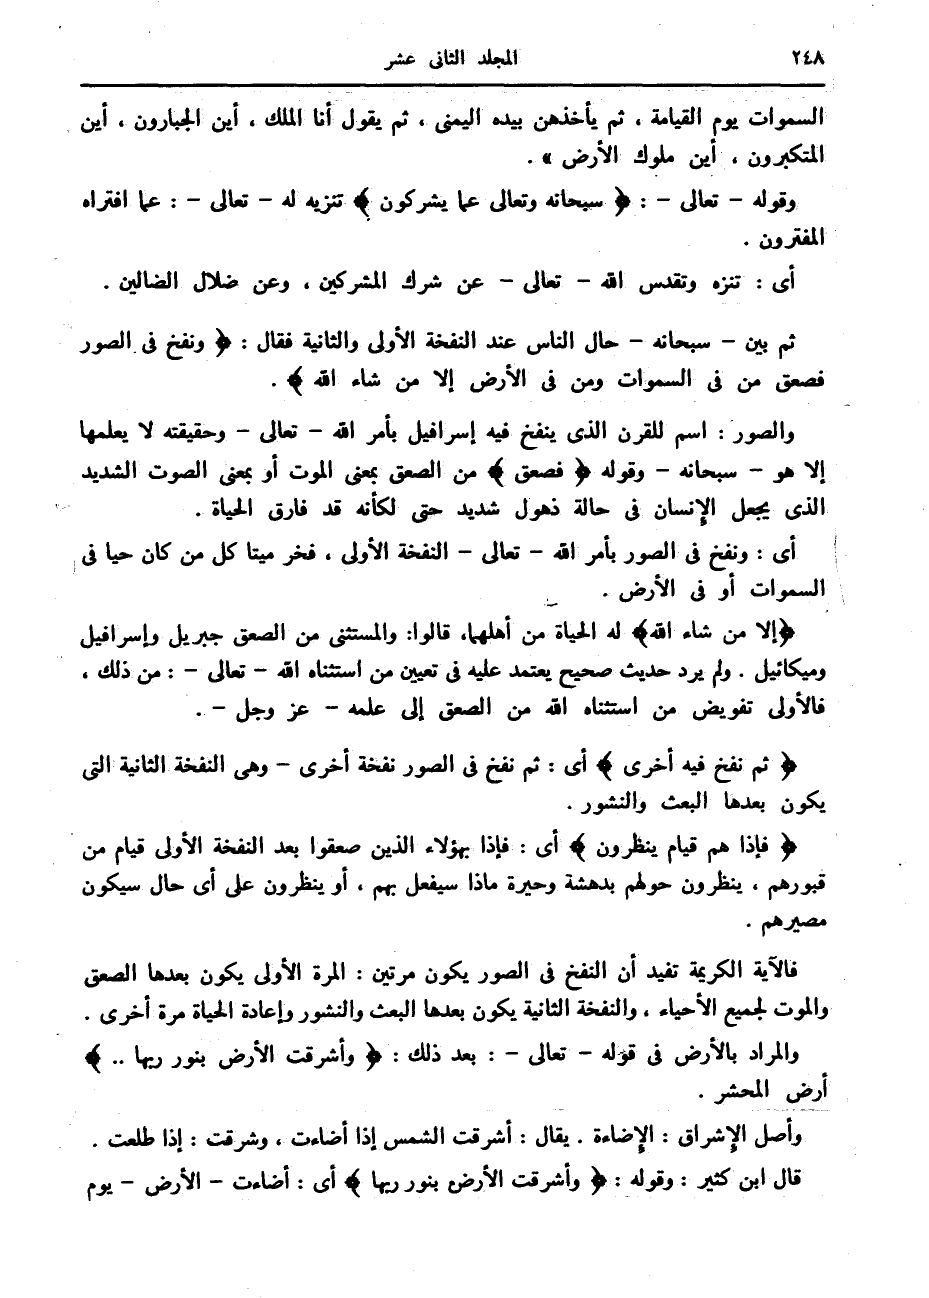 ٢٤٨
المجلد الثانى عشر
السموات يوم القيامة ، ثم يأخذهن بيده اليمنى ، ثم يقول أنا الملك ، أين الجبارون ، أين
المتكبرون ، أين ملوك الأرض » .
وقوله – تعالى – : ﴿ سبحانه وتعالى عما يشركون ﴾ تنزيه له – تعالى – : عما افتراه
المفترون .
أى : تنزه وتقدس الله – تعالى – عن شرك المشركين ، وعن ضلال الضالين .
ثم بين – سبحانه – حال الناس عند النفخة الأولى والثانية فقال : ﴿ ونفخ فى الصور
فصعق من فى السموات ومن فى الأرض إلا من شاء الله ﴾ .
والصور : اسم للقرن الذى ينفخ فيه إسرافيل بأمر الله – تعالى – وحقيقته لا يعلمها
إلا هو – سبحانه – وقوله ﴿ فصعق ﴾ من الصعق بمعنى الموت أو بمعنى الصوت الشديد
الذى يجعل الإنسان فى حالة ذهول شديد حتى لكأنه قد فارق الحياة .
أى : ونفخ فى الصور بأمر الله – تعالى – النفخة الأولى ، فخر ميتا كل من كان حيا فى
السموات أو فى الأرض .
﴿إلا من شاء الله﴾ له الحياة من أهلهما، قالوا: والمستثنى من الصعق جبريل وإسرافيل
وميكائيل . ولم يرد حديث صحيح يعتمد عليه فى تعيين من استثناه الله – تعالى – : من ذلك ،
فالأولى تفويض من استثناه الله من الصعق إلى علمه – عز وجل – .
﴿ ثم نفخ فيه أخرى ﴾ أى : ثم نفخ فى الصور نفخة أخرى – وهى النفخة الثانية التى
يكون بعدها البعث والنشور .
﴿ فإذا هم قيام ينظرون ﴾ أى : فإذا بهؤلاء الذين صعقوا بعد النفخة الأولى قيام من
قبورهم ، ينظرون حولهم بدهشة وحيرة ماذا سيفعل بهم ، أو ينظرون على أى حال سيكون
مصيرهم .
فالآية الكريمة تفيد أن النفخ فى الصور يكون مرتين : المرة الأولى يكون بعدها الصعق
والموت لجميع الأحياء ، والنفخة الثانية يكون بعدها البعث والنشور وإعادة الحياة مرة أخرى .
والمراد بالأرض فى قوله – تعالى – : بعد ذلك : ﴿ وأشرقت الأرض بنور ربها .. ﴾
أرض المحشر .
وأصل الإشراق : الإضاءة . يقال : أشرقت الشمس إذا أضاءت ، وشرقت : إذا طلعت .
قال ابن كثير : وقوله : ﴿ وأشرقت الأرض بنور ربها ﴾ أى : أضاءت – الأرض – يوم